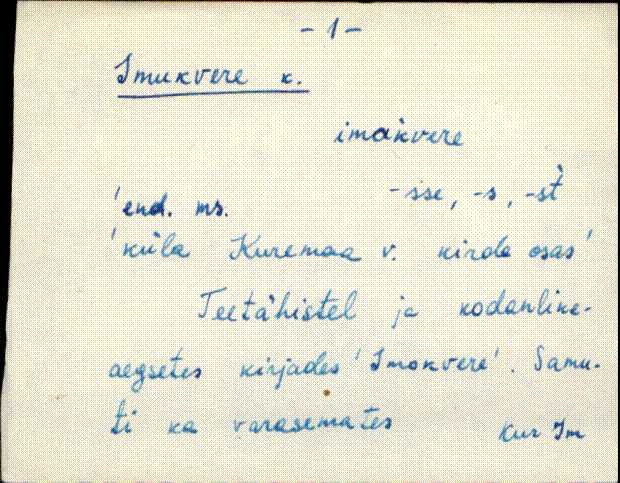 - 1 -
Imukvere k.
imàkvere
-sse, -s, -st̀
'end. ms.
'küla Kuremaa v. kirde osas'
Teetähistel ja kodanlike-
aegsetes kirjades 'Imokvere'. Samu-
ti ka varasemates
Kur Im